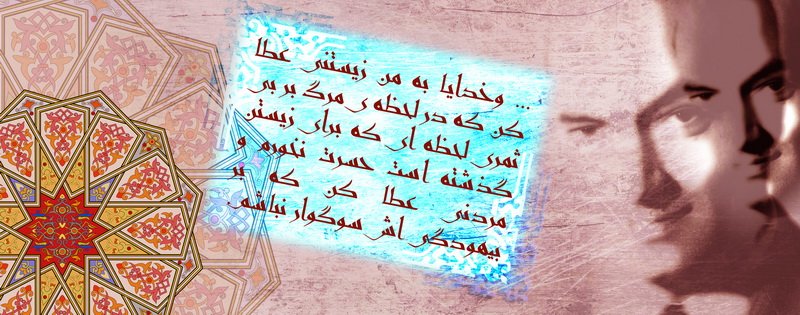 ... وخدایا به من زیستنی عطا
کن که در لحظه ی مرگ بر بی
ثمری لحظه ای که برای زیستن
گذشته است حسرت نخورم و
مردنی عطا کن که بر
بیهودگی اش سوگوار نباشم.